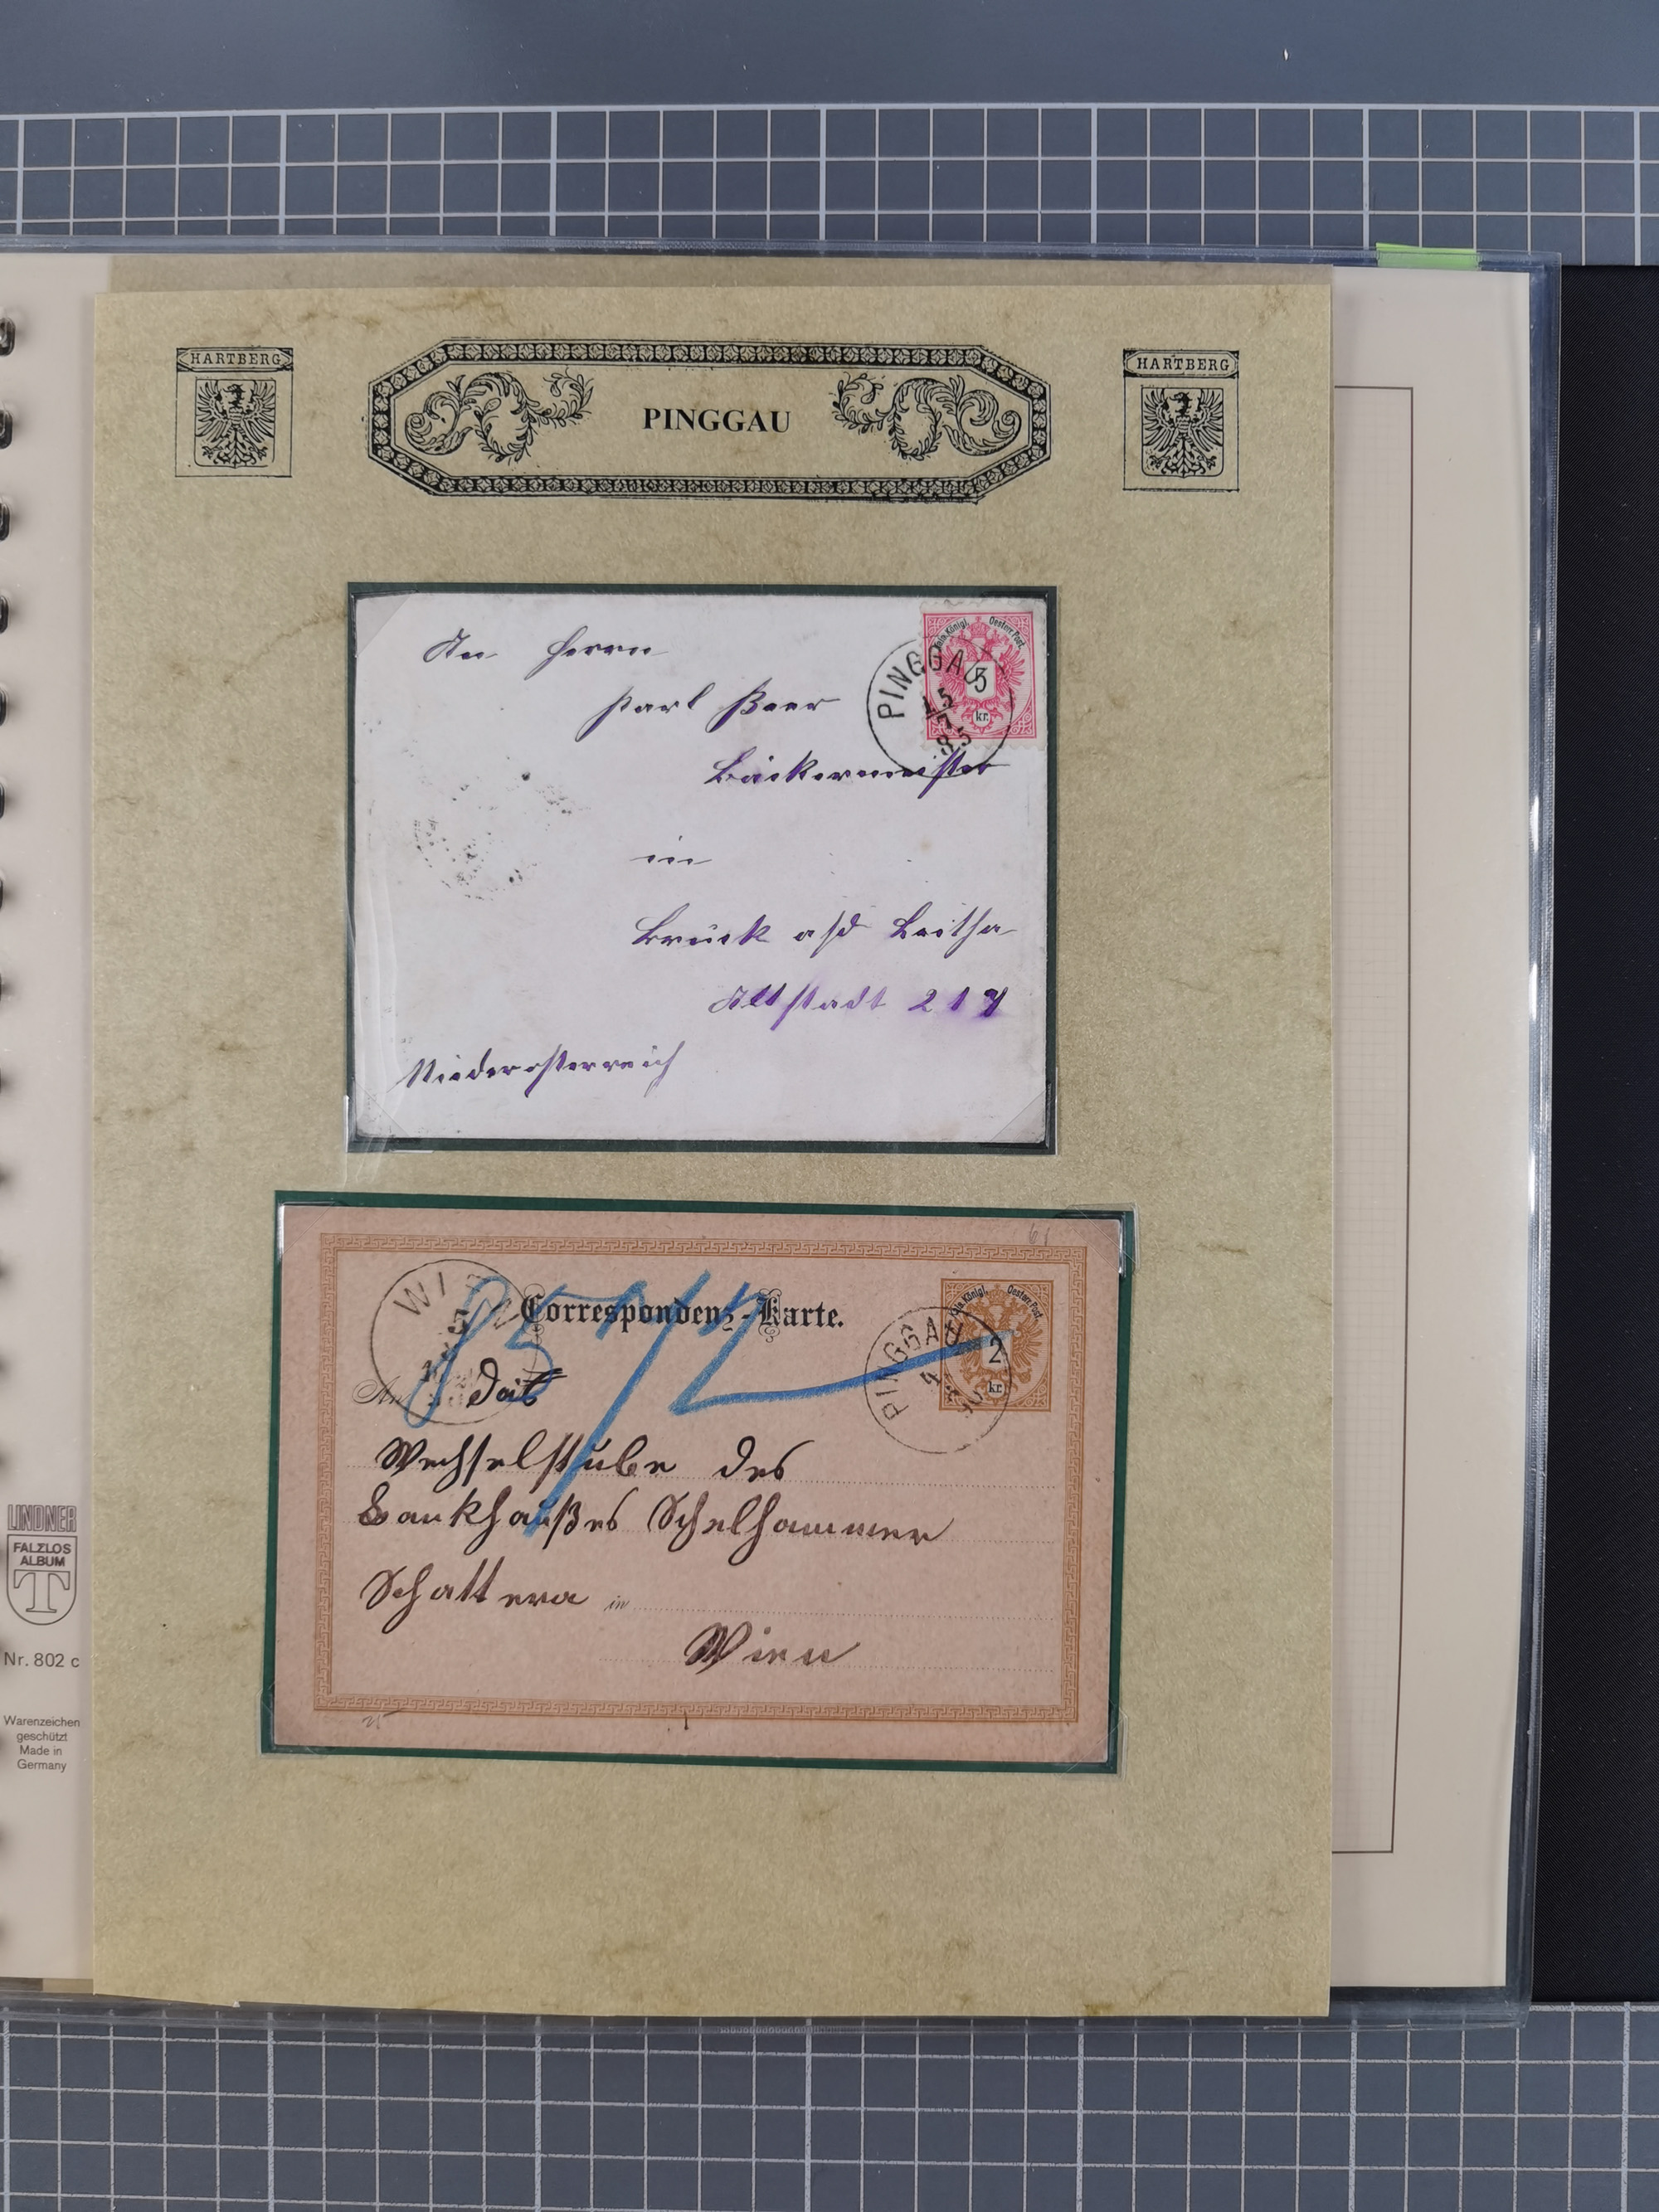 HARTBERG
PINGGAU
HARTBERG
An Herrn
Karl Beer
Bäckermeister
in
Bruck a/d Leitha
Altstadt 217
Niederösterreich
Kais. Königl. Oesterr. Post.
5
kr.
PINGGAU
15
7
85
Correspondenz-Karte.
WIEN
5
An das
Wechselstube des
Bankhaußes Schelhammer
Schattera in
Wien
Kais. Königl. Oesterr. Post.
2
kr.
PINGGAU
4
LINDNER
FALZLOS
ALBUM
T
Nr. 802 c
Warenzeichen
geschützt
Made in
Germany